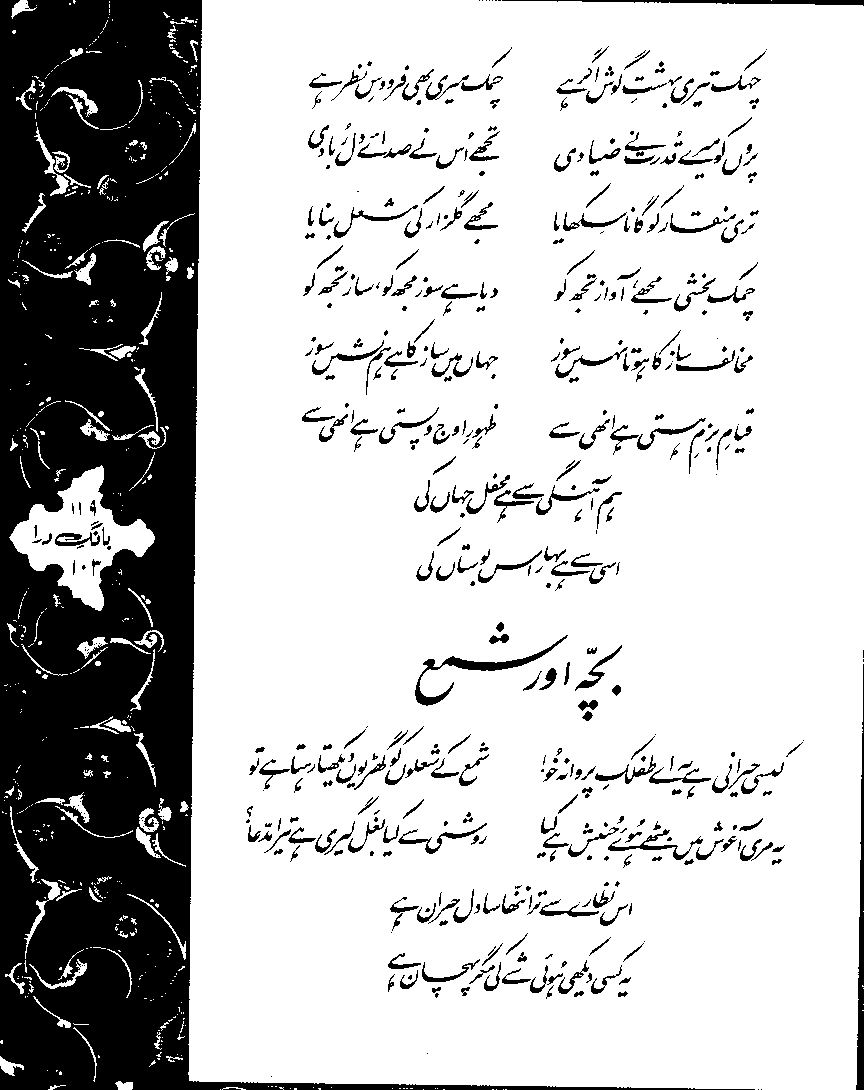 چہک تیری بہشتِ گوش اگر ہے چمک میری بھی فردوسِ نظر ہے
پروں کو میرے قُدرت نے ضیا دی تجھے اُس نے صدائے دل رُبا دی
تری منقار کو گانا سِکھایا مجھے گلزار کی مشعل بنایا
چمک بخشی مجھے، آواز تجھ کو دیا ہے سوز مجھ کو، ساز تجھ کو
مخالف ساز کا ہوتا نہیں سوز جہاں میں ساز کا ہے ہم نشیں سوز
قیامِ بزمِ ہستی ہے انھی سے ظہورِ اوج و پستی ہے انھی سے
ہم آہنگی سے ہے محفل جہاں کی
اسی سے ہے بہار اس بوستاں کی
۱۱۹
بانگِ درا
۱۰۳
بچّہ اور شمع
کیسی حیرانی ہے یہ اے طفلکِ پروانہ خُو! شمع کے شعلوں کو گھڑیوں دیکھتا رہتا ہے تو
یہ مری آغوش میں بیٹھے ہوئے جُنبش ہے کیا روشنی سے کیا بغَل گیری ہے تیرا مدّعا؟
اس نظارے سے ترا ننّھا سا دل حیران ہے
یہ کسی دیکھی ہُوئی شے کی مگر پہچان ہے